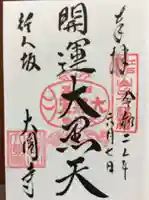 奉拝
令和二年
六月七日
開運
大黒天
行人坂
大圓寺